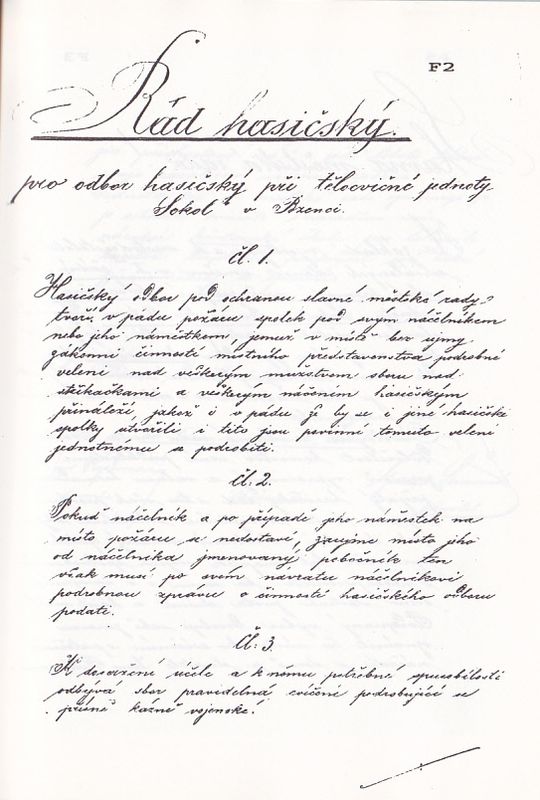 F2
Řád hasičský.
pro odbor hasičský při tělocvičné jednoty
Sokol" v Bzenci.
čl. 1.
Hasičský odbor pod ochranou slavné městské rady
tvoří v pádu požáru spolek pod svým náčelníkem
nebo jeho náměstkem, jemuž v místě bez ujmy
zákonní činnosti místního představenstva podrobné
velení nad veškerým mužstvem sboru nad
stříkačkami a veškerým náčením hasičským
přináleží, jakož i v pádu že by se i jiné hasičské
spolky utvořili i tito jsou povinni tomuto velení
jednotnému se podrobiti.
čl. 2.
Pokud náčelník a po případě jeho náměstek na
místo požáru se nedostaví, zaujme místo jeho
od náčelníka jmenovaný pobočník ten
však musí po svém návratu náčelníkovi
podrobnou zprávu o činnosti hasičského odboru
podati.
Čl. 3.
K dosažení účele a k němu potřebné spusobilosti
odbývá sbor pravidelná cvičení podrobující se
přísné kázně vojenské.